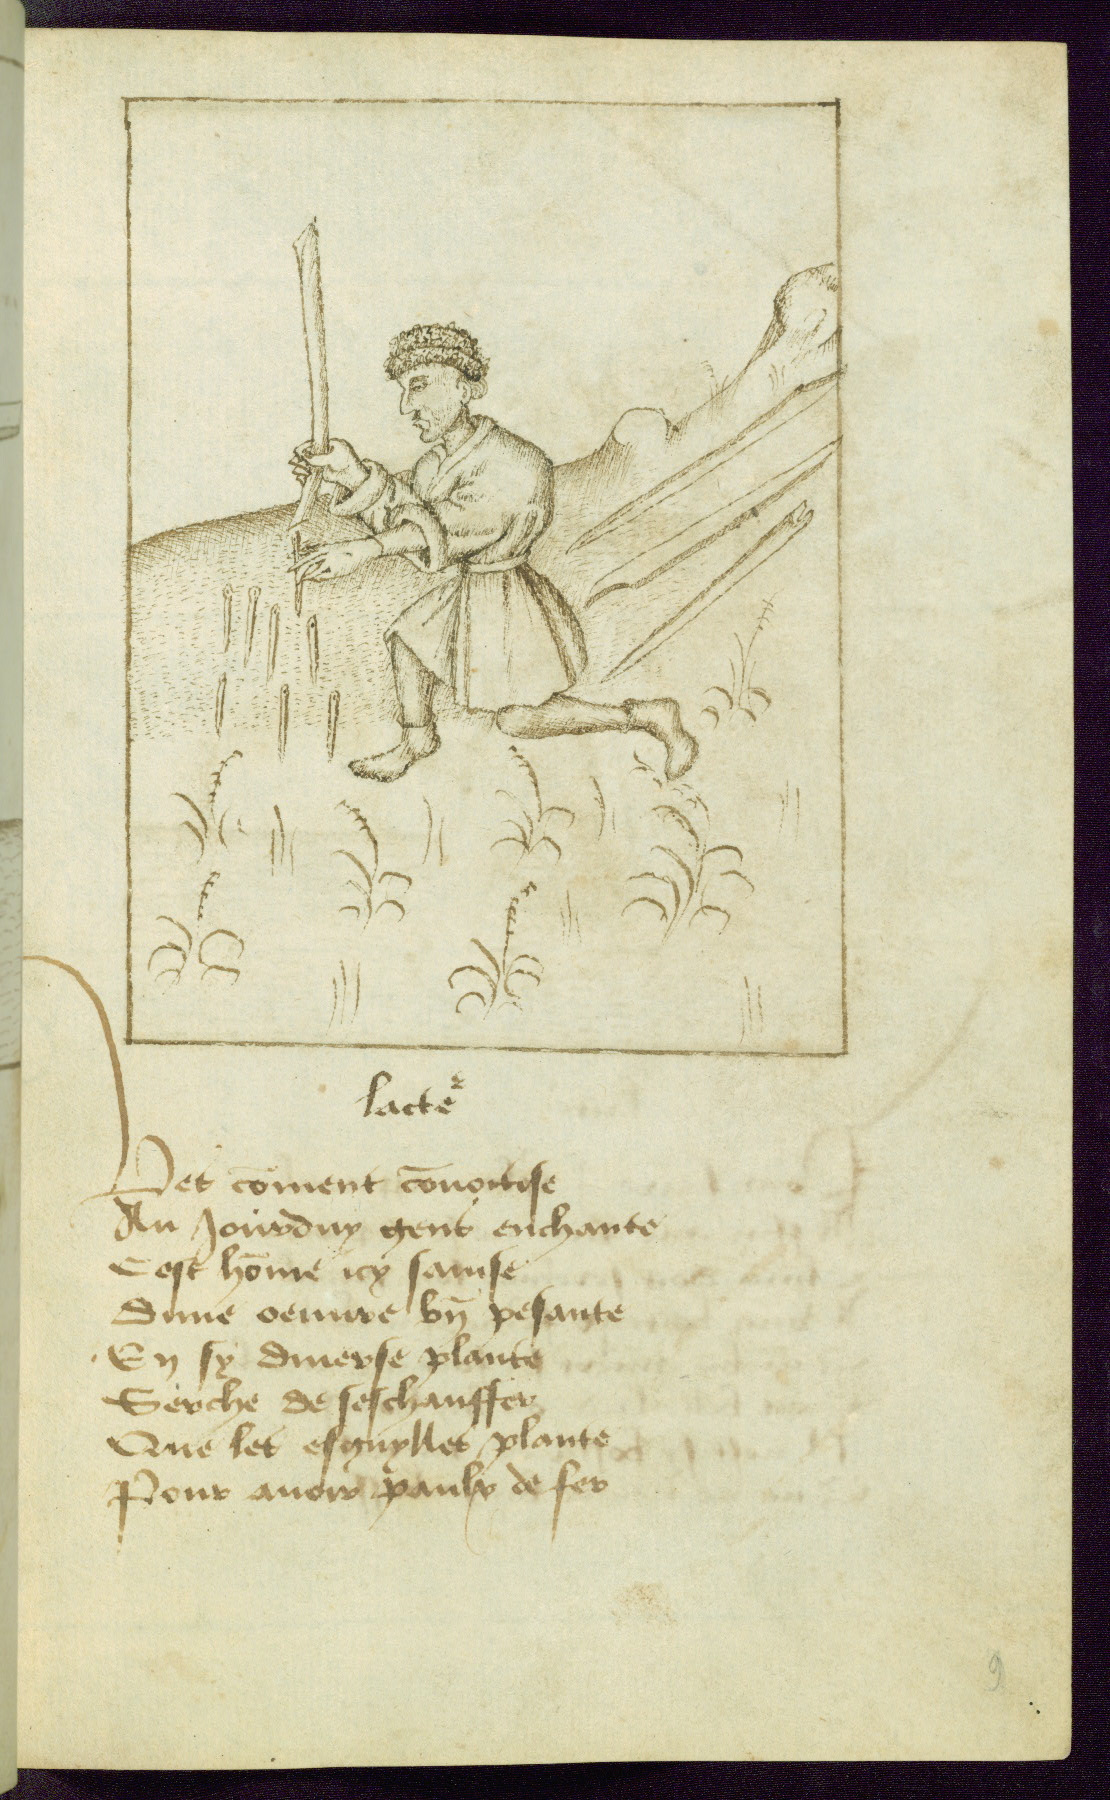 lacteͬ
Ves cōment cōuoitise
Au Jourduy gens enchante
Cest hōme icy sauise
Dune oeuure bn̄ pesante
En sy diuerse plante
Serche de seschauffer
Que les esguylles plante
Pour auoir paulx de fer
9